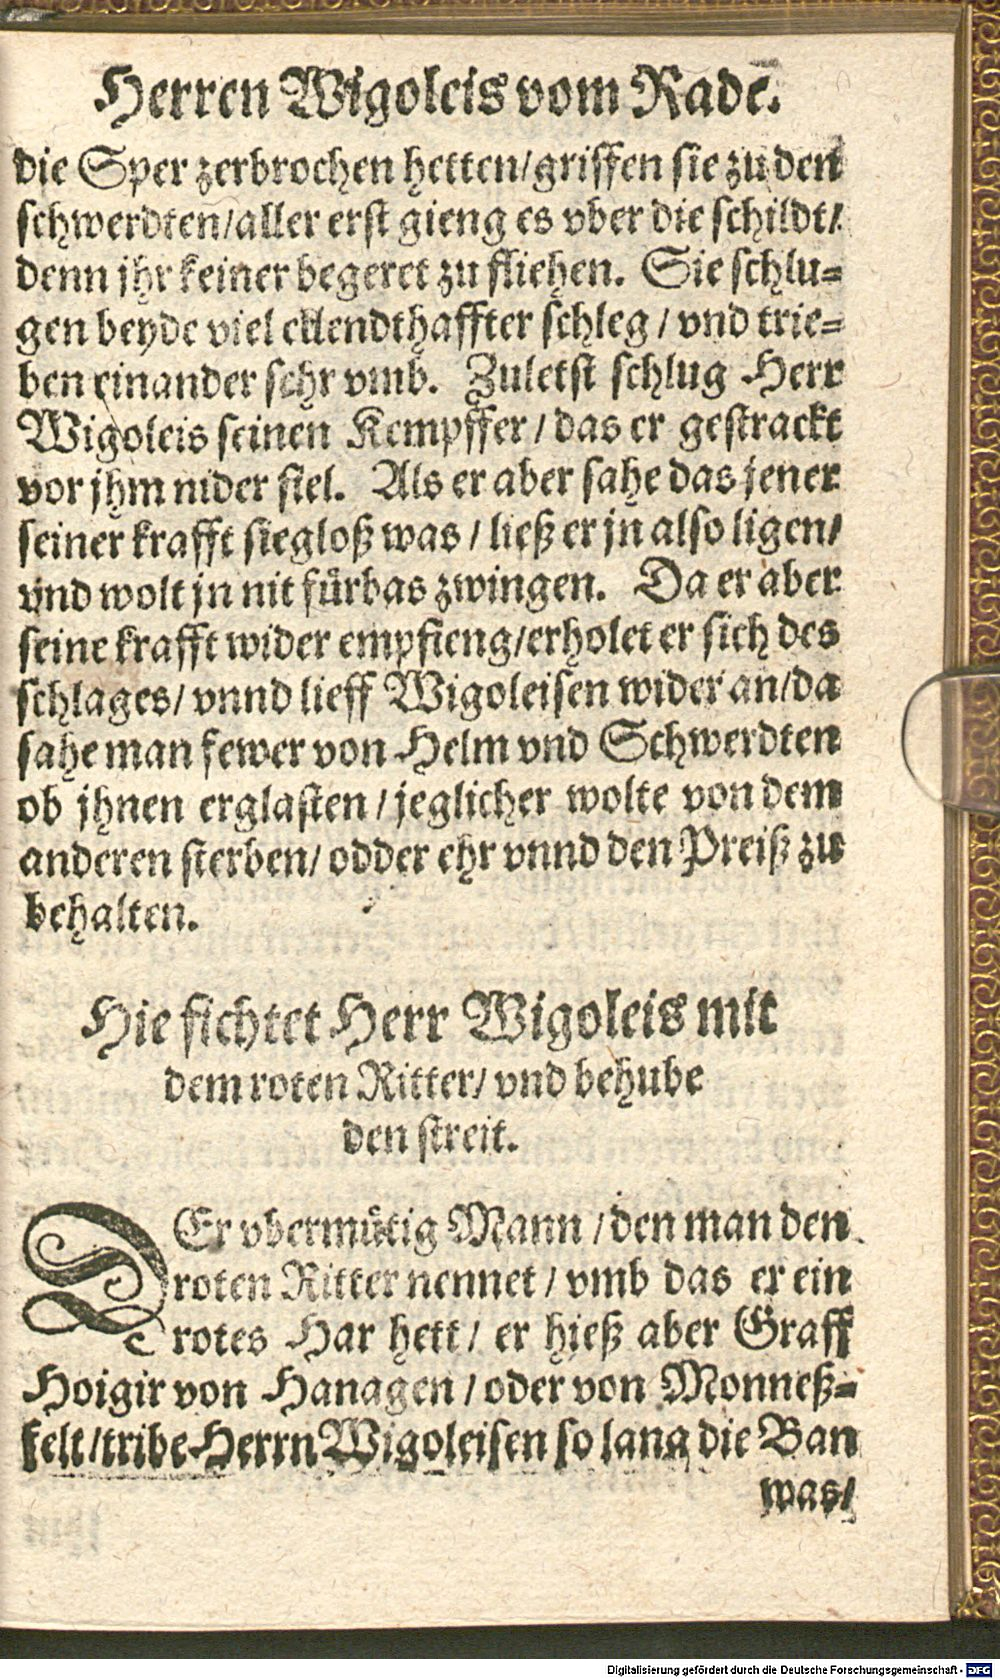 Herren Wigoleis vom Rade.
die Sper zerbrochen hetten/griffen sie zu den
schwerdten/aller erst gieng es vber die schildt/
denn jhr keiner begeret zu fliehen. Sie schlu=
gen beyde viel ellendthaffter schleg / vnd trie=
ben einander sehr vmb. Zuletst schlug Herr
Wigoleis seinen Kempffer / das er gestrackt
vor jhm nider fiel. Als er aber sahe das jener
seiner krafft siegloß was / ließ er jn also ligen/
vnd wolt jn nit fürbas zwingen. Da er aber
seine krafft wider empfieng/erholet er sich des
schlages/ vnnd lieff Wigoleisen wider an/da
sahe man fewer von Helm vnd Schwerdten
ob jhnen erglasten / jeglicher wolte von dem
anderen sterben/ odder ehr vnnd den Preiß zu
behalten.
Hie fichtet Herr Wigoleis mit
dem roten Ritter/ vnd behube
den streit.
DEr vbermütig Mann / den man den
roten Ritter nennet / vmb das er ein
rotes Har hett / er hieß aber Graff
Hoigir von Hanagen / oder von Monneß=
felt/tribe Herrn Wigoleisen so lang die Ban
was/
Digitalisierung gefördert durch die Deutsche Forschungsgemeinschaft - DFG